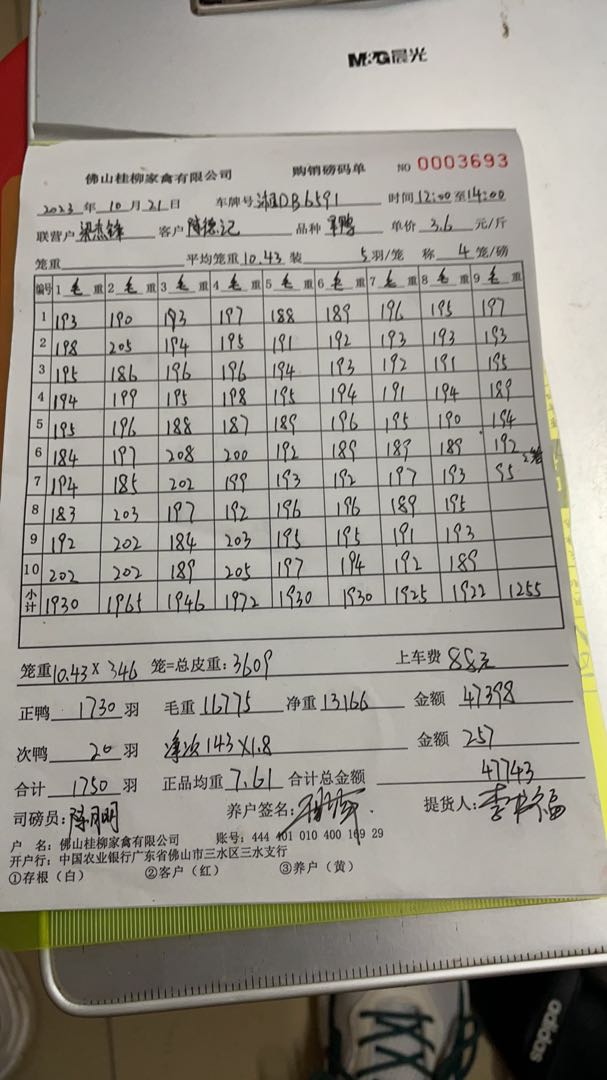 M&G晨光
佛山桂柳家禽有限公司 购销磅码单 NO 0003693
2023 年 10 月 21 日 车牌号 湘DB6591 时间 12:00 至 14:00
联营户 梁杰锋 客户 陈德记 品种 单价 3.6 元/斤
笼重 平均笼重 10.43 装 5 羽/笼 称 4 笼/磅
编号 1 毛 重 2 毛 重 3 毛 重 4 毛 重 5 毛 重 6 毛 重 7 毛 重 8 毛 重 9 毛 重
1 193 190 193 197 188 189 196 195 197
2 198 205 194 195 191 192 193 193 193
3 195 186 196 196 194 193 192 191 195
4 194 199 195 198 195 194 191 194 189
5 195 196 188 187 189 196 195 190 194
6 184 197 208 200 192 189 189 189 192
7 194 185 202 199 193 192 197 193 95 2笼
8 183 203 197 192 196 196 189 195
9 192 202 184 203 195 195 191 193
10 202 202 189 205 197 194 192 189
小计 1930 1965 1946 1972 1930 1930 1925 1922 1255
笼重 10.43 X 346 笼=总皮重: 3609 上车费 88元
正鸭 1730 羽 毛重 16775 净重 13166 金额 47398
次鸭 20 羽 净次 143 X 1.8 金额 257
合计 1750 羽 正品均重 7.61 合计总金额 47743
司磅员: 陈月明 养户签名: 提货人:
户 名: 佛山桂柳家禽有限公司 账号: 444 401 010 400 169 29
开户行: 中国农业银行广东省佛山市三水区三水支行
①存根(白) ②客户(红) ③养户(黄)
adidas